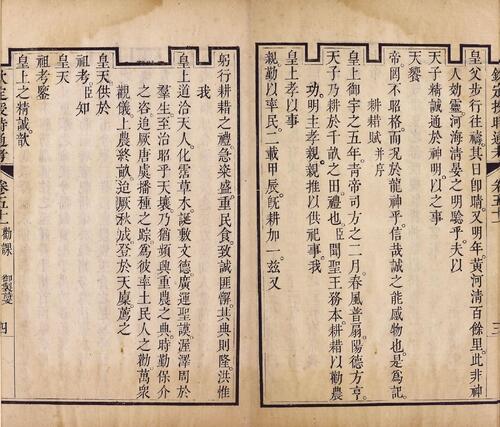 皇父步行往禱其日卽晴又明年黃河清百餘里此非神
人効靈河海清晏之明驗乎夫以
天子精誠通於神明以之事
天饗
帝罔不昭格而況於龍神乎信哉誠之能感物也是爲記
耕耤賦 并序
皇上御宇之五年青帝司方之二月春風普扇陽德方亨
天子乃耕於千畝之田禮也臣聞聖王務本耕耤以勸農
功明主孝親親推以供祀事我
皇上孝以事
親勤以率民二載甲辰旣耕加一茲又
躬行耕耤之禮急粢盛重民食致誠匪懈其典則隆洪惟
我
皇上道洽天人化霑草木誕敷文德廣運聖謨渥澤周於
羣生至治昭乎天壤乃猶頻興重農之典時勤保介
之咨追厥唐虞播種之踪爲彼率土民人之勸萬衆
觀儀上農終畝迨厥秋成登於天廩薦之
皇天供於
祖考臣知
皇天
祖考鑒
皇上之精誠歆
欽定授時通考 卷五十一 勸課 御製 四